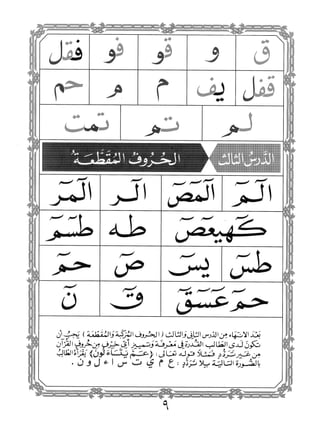 ق و قو فو فقل
قفل يف م م حم
لم تم تمت
الدَرسُ الثالِث الحُروفُ المُقَطَّعَةُ
الٓمٓ الٓمٓصٓ الٓر الٓمٓر
كٓهيعٓصٓ طه طسٓمٓ
طسٓ يسٓ صٓ حمٓ
حمٓ عٓسٓقٓ قٓ نٓ
بَعْدَ الانتهَاءِ مِنَ الدَرسِ الثاني وَالثالِث (الحُروفُ المُرَكَّبَة وَالمُقَطَّعَة) يَجِبُ أنْ
تكونَ لَدى الطالبِ القُدرَة في مَعْرِفَةِ وَتَمييزِ أيّ حَرْفٍ مِنْ حُروفِ القُرآنِ
مِن غَيرِ تَرَدُّدٍ فَمَثَلاً قوله تعَالى: (عَمَّ يَتَسَاءَلُونَ) يَقرَأهُ الطالِبُ
بالصُورَةِ التاليَةِ بِلا تَرَدُّد: ع م ي ت س ا ء ل و ن .
٩